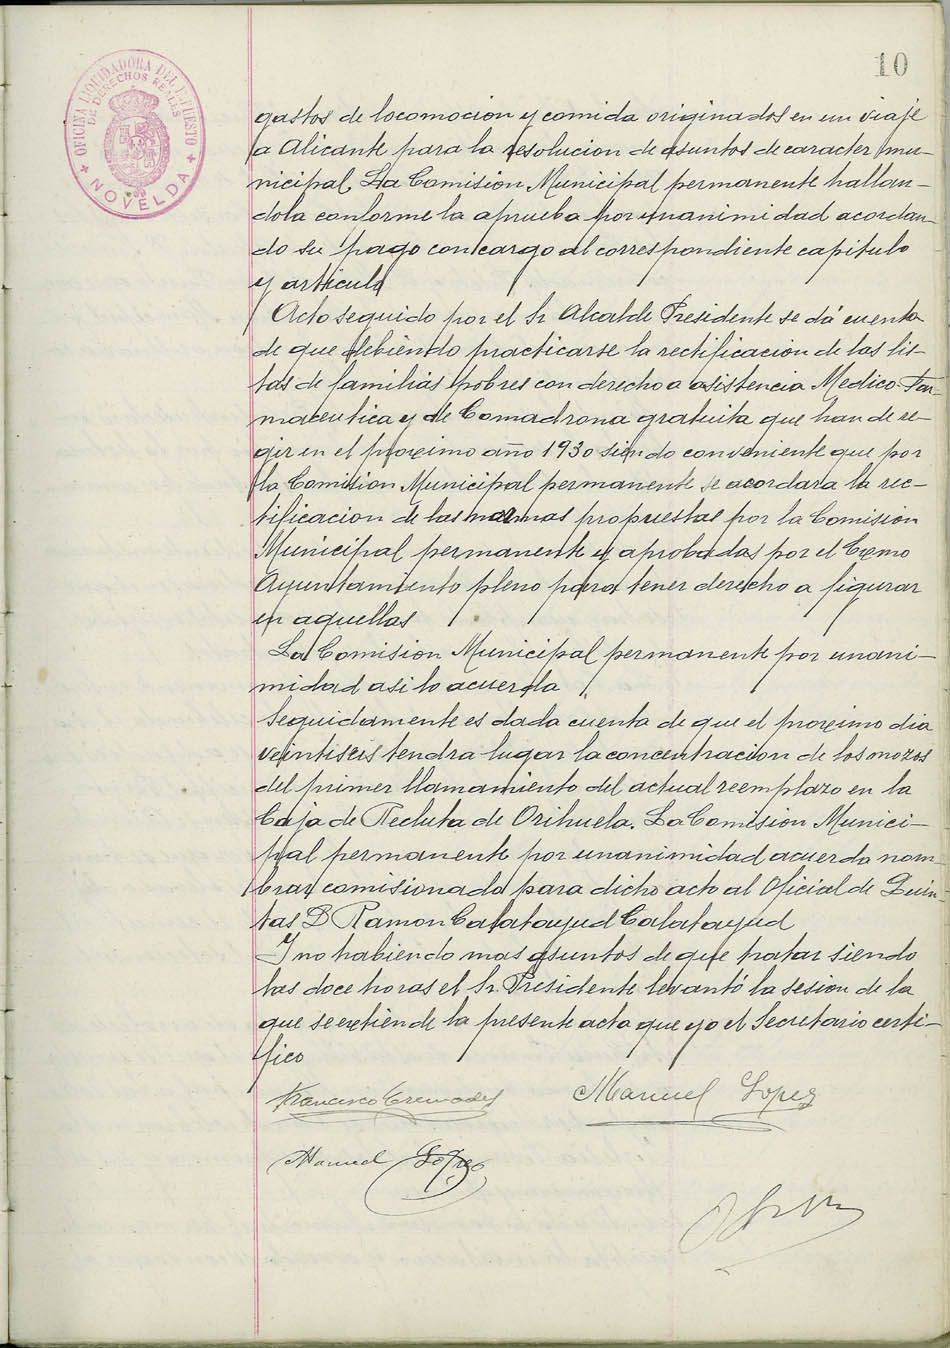 10
OFICINA LIQUIDADORA DEL IMPUESTO
DE DERECHOS REALES
NOVELDA
gastos de locomocion y comida originados en un viaje
a Alicante para la resolucion de asuntos de caracter mu-
nicipal, La Comision Municipal permanente hallan-
dola conforme la aprueba por unanimidad acordan-
do su pago con cargo al correspondiente capitulo
y articulo
Acto seguido por el Sr Alcalde Presidente se dá cuenta
de que debiendo practicarse la rectificacion de las lis-
tas de familias pobres con derecho a asistencia Medico-Far-
maceutica y de Comadrona gratuita que han de re-
gir en el proximo año 1930 siendo conveniente que por
la Comision Municipal permanente se acordara la rec-
tificacion de las normas propuestas por la Comision
Municipal permanente y aprobadas por el Exmo
Ayuntamiento pleno para tener derecho a figurar
en aquellas
La Comision Municipal permanente por unani-
midad asi lo acuerda
Seguidamente es dada cuenta de que el proximo dia
veintiseis tendra lugar la concentracion de los mozos
del primer llamamiento del actual reemplazo en la
Caja de Recluta de Orihuela. La Comision Munici-
pal permanente por unanimidad acuerda nom-
brar comisionado para dicho acto al Oficial de Quin-
tas D Ramon Calatayud Calatayud
Y no habiendo mas asuntos de que tratar siendo
las doce horas el Sr. Presidente levantó la sesion de la
que se extiende la presente acta que yo el Secretario certi-
fico
Francisco Cremades
Manuel Lopez
Manuel Lopez